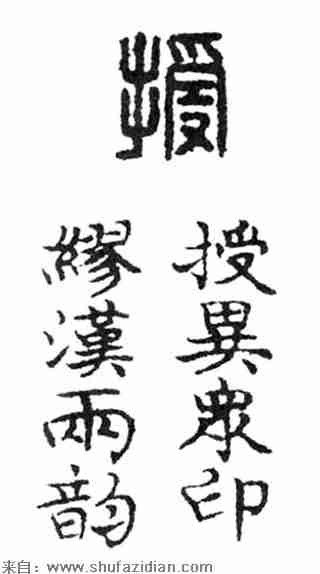 授
授異衆印
繆漢兩韵
来自：www.shufazidian.com